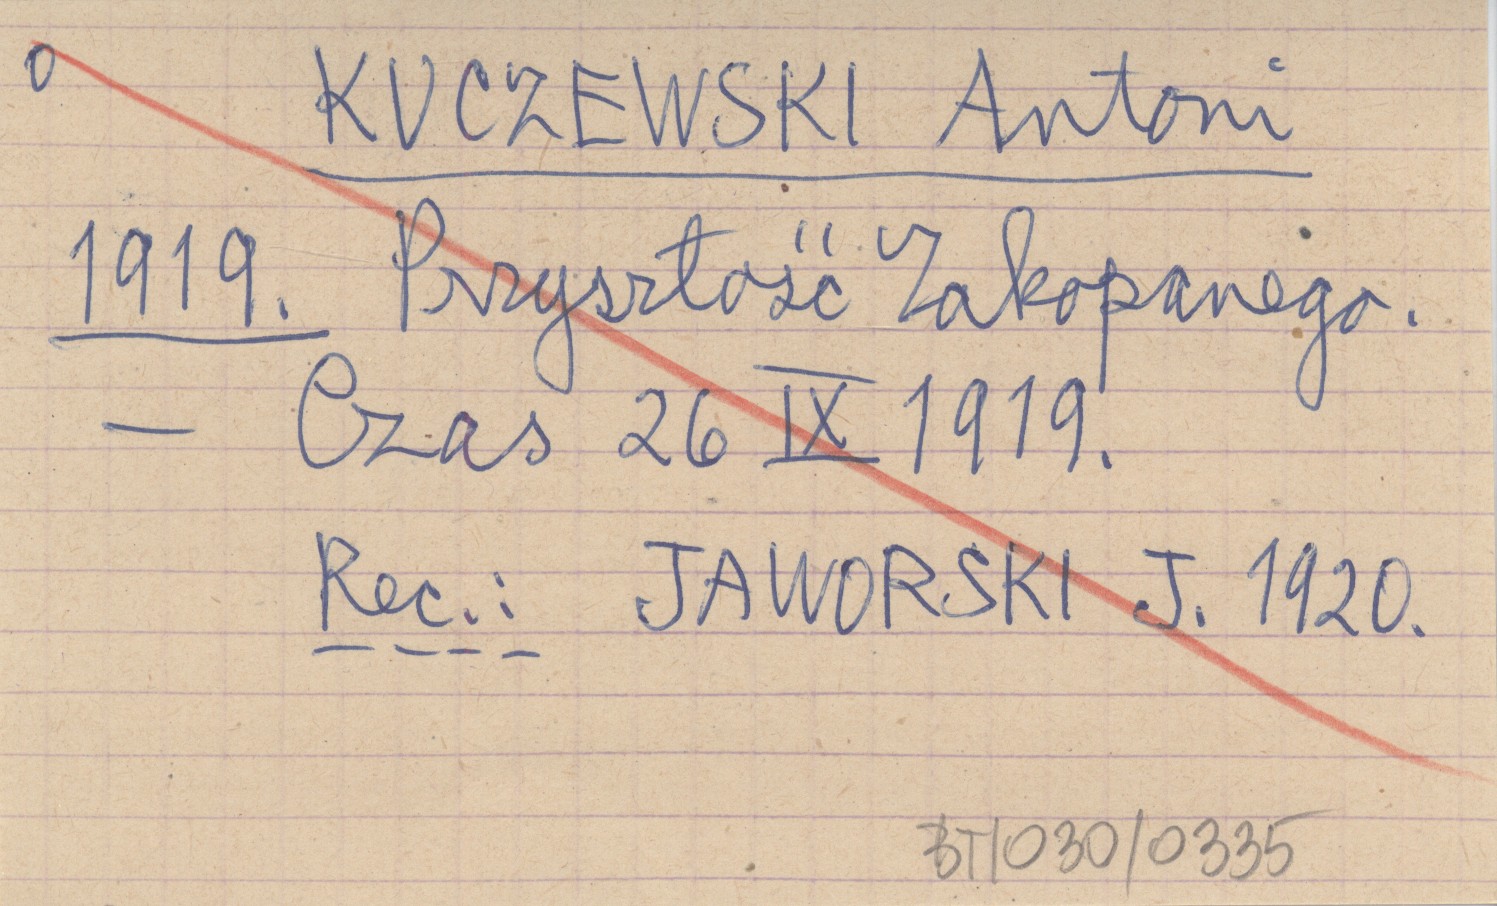 o KUCZEWSKI Antoni
1919. Przyszłość Zakopanego.
— Czas 26 IX 1919.
Rec.: JAWORSKI J. 1920.
BT/030/0335